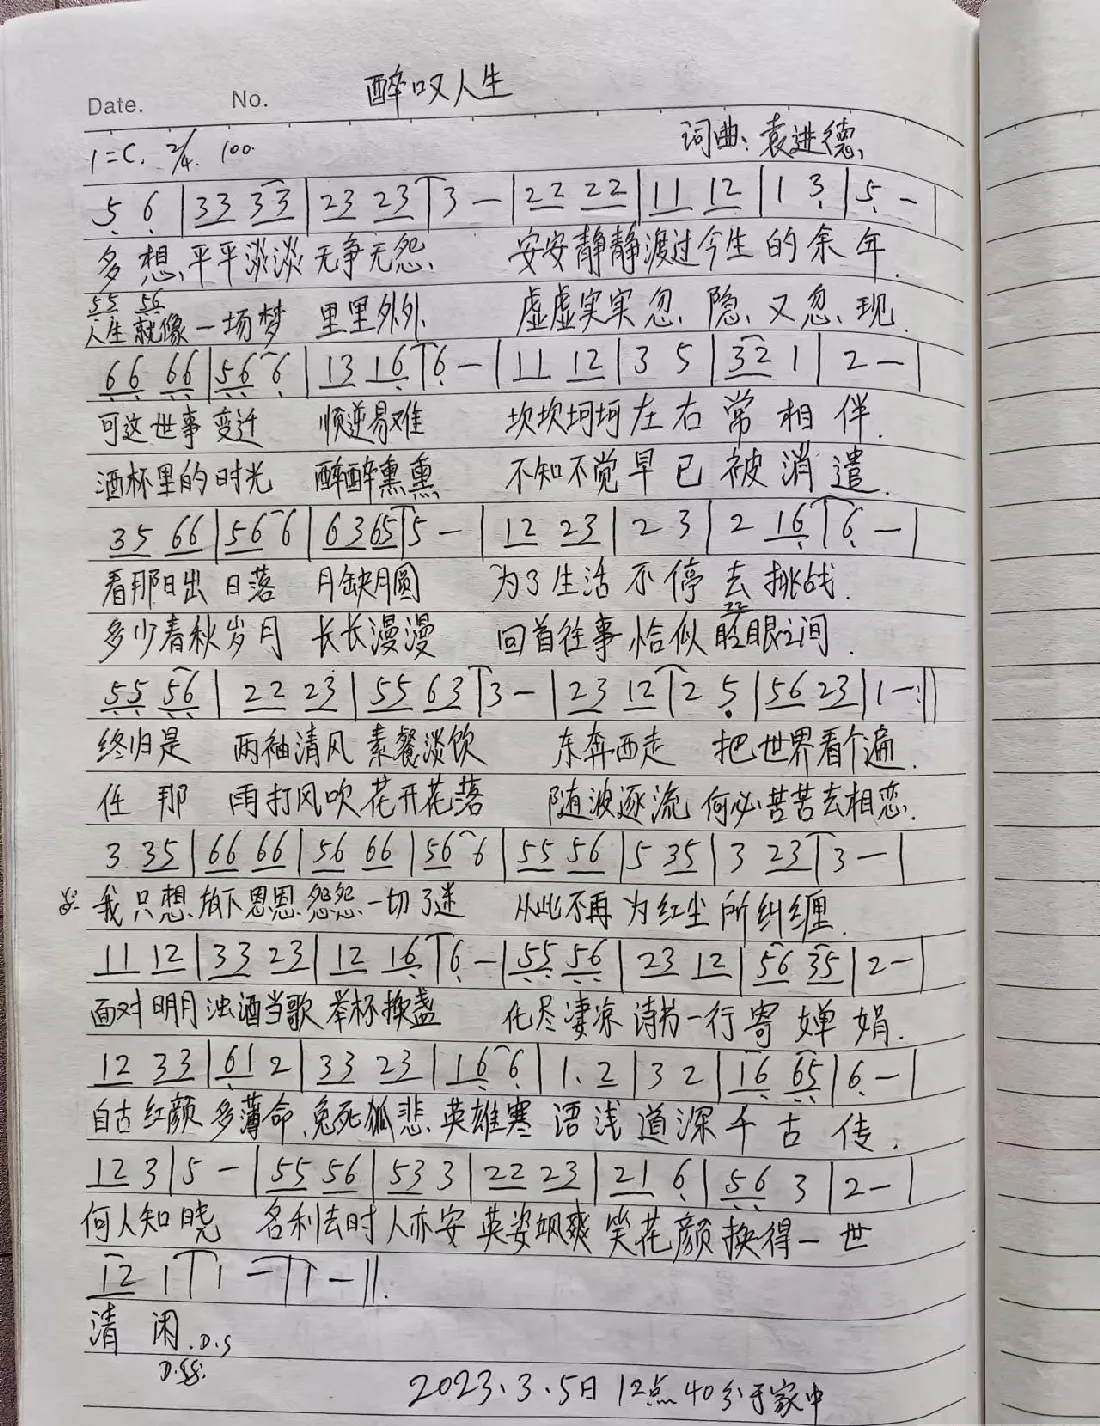 醉叹人生
Date. No.
词曲:袁进德
1=C. 2/4. 100
5 6 | 33 33 | 23 23 | 3 — | 22 22 | 11 12 | 1 3 | 5 — |
多想、平平淡淡 无争无怨、 安安静静渡过今生的余年.
55 56
人生就像一场梦 里里外外、 虚虚实实忽、隐、又忽、现.
66 66 | 56 6 | 13 16 | 6 — | 11 12 | 3 5 | 32 1 | 2 — |
可这世事变迁 顺逆易难 坎坎坷坷左右常相伴.
酒杯里的时光 醉醉熏熏 不知不觉早已被消遣.
35 66 | 56 6 | 63 65 | 5 — | 12 23 | 2 3 | 2 16 | 6 — |
看那日出日落 月缺月圆 为了生活不停去挑战.
22
多少春秋岁月 长长漫漫 回首往事恰似眨眼之间.
55 56 | 22 23 | 55 63 | 3 — | 23 12 | 2 5 | 56 23 | 1 — :||
终归是 两袖清风 素餐淡饮 东奔西走 把世界看个遍.
任那 雨打风吹花开花落 随波逐流 何必苦苦去相恋.
3 35 | 66 66 | 56 66 | 56 6 | 55 56 | 5 35 | 3 23 | 3 — |
我只想放下恩恩怨怨一切了迷 从此不再为红尘所纠缠.
11 12 | 33 23 | 12 16 | 6 — | 55 56 | 23 12 | 56 35 | 2 — |
面对明月浊酒当歌举杯换盏 化尽凄凉诗书一行寄婵娟.
12 33 | 61 2 | 33 23 | 16 6 | 1. 2 | 3 2 | 16 65 | 6 — |
自古红颜多薄命、兔死狐悲、英雄寒 语浅道深千古传.
12 3 | 5 — | 55 56 | 53 3 | 22 23 | 21 6 | 56 3 | 2 — |
何人知晓 名利去时人亦安 英姿飒爽笑花颜换得一世
12 1 | 1 — | 1 — ||.
清闲.D.S
D.SS.
2023.3.5日12点40分于家中